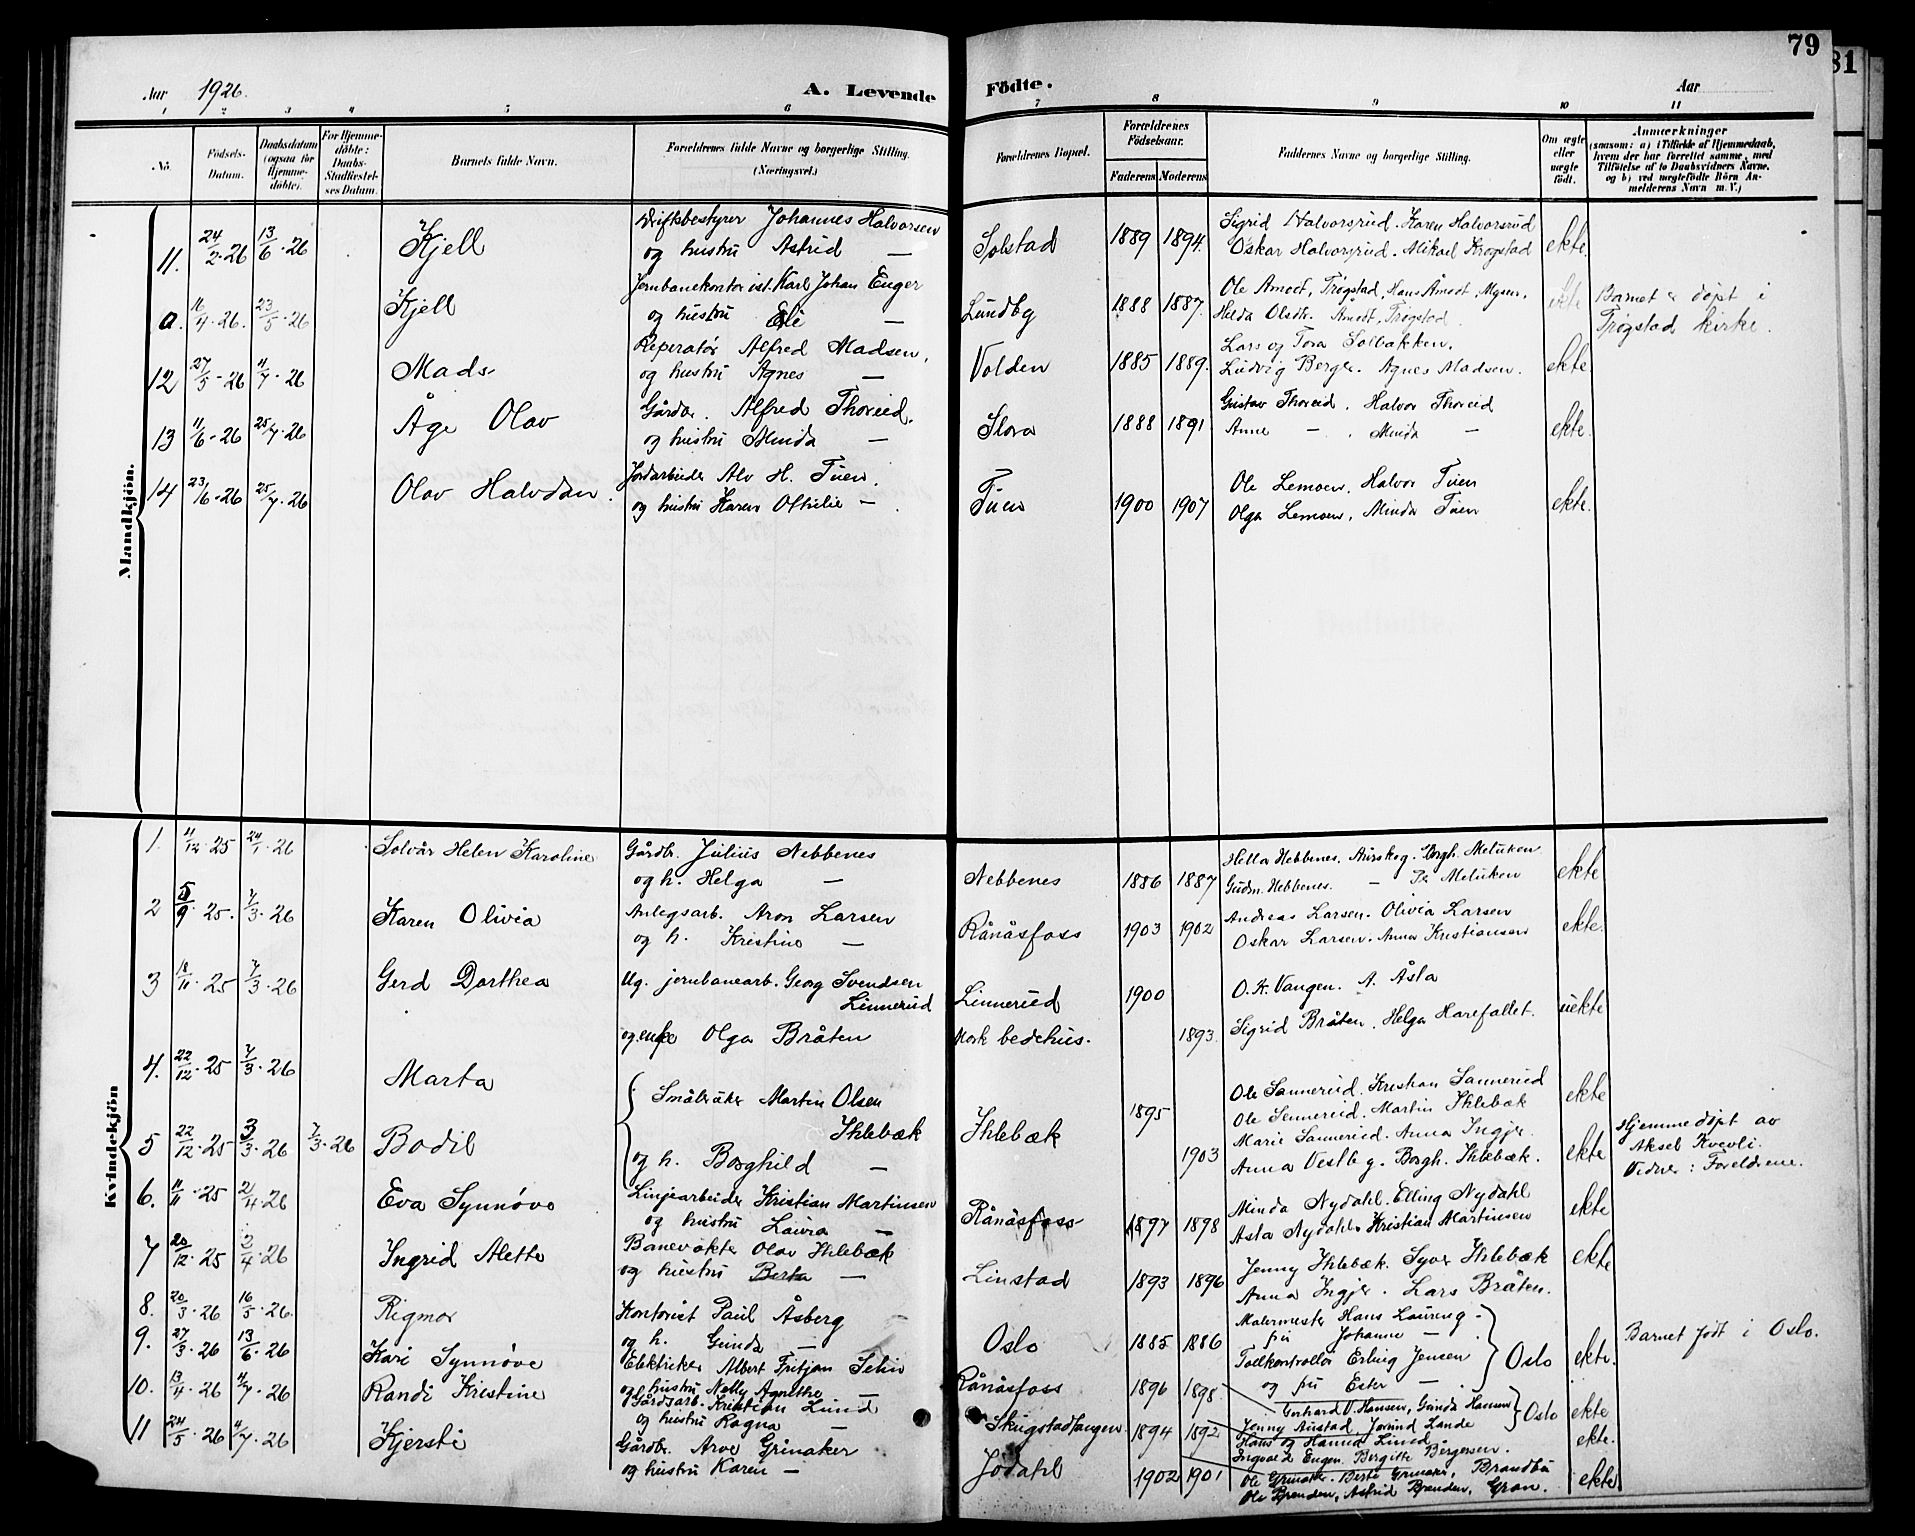 79
81
Aar 1926.
A. Levende
Födte.
Aar
1 2 3 4 5 6 7 8 9 10 11
No
Födsels-Datum.
Daabsdatum (ogsaa for Hjemme-döbte).
For Hjemme-döbte: Daabs-Stadfæstel-ses Datum.
Barnets fulde Navn.
Forældrenes fulde Navne og borgerlige Stilling. (Næringsvei.)
Forældrenes Bopæl.
Forældrenes Födselsaar.
Faderens Moderens
Faddernes Navne og borgerlige Stilling.
Om ægte eller uægte födt.
Anmærkninger
(saasom: a) i Tilfælde af Hjemmedaab,
hvem der har forrettet samme, med
Tilföielse af to Daabsvidners Navne,
og b) ved uægtefödte Börn An-
melderens Navn m. V.)
Mandkjön.
11. 24/2-26 13/6-26 Kjell Driftsbestyrer Johannes Halvorsen Solstad 1889 1894. Sigrid Halvorsrud. Karen Halvorsrud ekte
og hustru Astrid — Oskar Halvorsrud. Mikael Krogstad
a. 16/4-26. 23/5-26 Kjell Jernbanekontorist Karl Johan Enger Lundby 1888 1887. Ole Åmodt, Trøgstad, Hans Åmodt, Mysen, ekte Barnet er døpt i
og hustru — Helda Olsdtr. Åmodt, Trøgstad. Trøgstad kirke.
12 27/5-26 4/7-26 Mads Reperatør Alfred Madsen, Volden 1885 1889. Lars og Tora Solbakken. ekte
og hustru Agnes — Ludvig Berger. Agnes Madsen.
13 11/6-26 25/7-26 Åge Olav Gårdbr. Alfred Thoreid. Slora 1888 1891 Gustav Thoreid. Halvor Thoreid ekte.
og hustru Minda — Anne — . Minda —
14 23/6-26 25/7-26 Olav Halvdan Jordarbeider Alv H. Tuen. Tuen 1900 1907 Ole Lemoen. Halvor Tuen ekte.
og hustru Karen Othilie — Olga Lemoen, Minda Tuen
Kvindekjön
1. 4/12-25 24/1-26 Solvår Helen Karoline Gårdbr. Julius Nebbenes Nebbenes 1886 1887 Hella Nebbenes. Aurskog. Borgh. Metuken ekte
og h. Helga — Gudm. Nebbenes. — Per Metuken
2 5/9-25. 7/3-26 Karen Olivia Anlegsarb. Aron Larsen Rånåsfoss 1903 1902 Andreas Larsen. Olivia Larsen ekte.
og h. Kristine — Oskar Larsen. Anna Kristiansen
3 18/11-25 7/3-26 Gerd Dorthea Ug. jernbanearb. Georg Svendsen Linnerud 1900 O. K. Vangen. A. Åsta uekte
Linnerud
og enke Olga Bråten Mork bedehus. 1893. Sigrid Bråten. Helga Harefallet.
4. 22/12-25 7/3-26 Marta Småbruker Martin Olsen 1895 Ole Sannerud. Kristian Sannerud ekte
Ihlebæk Ihlebæk Ole Sannerud. Martin Ihlebæk
5 22/12-25 3/3-26 7/3-26 Bodil og h. Borghild — 1903 Marie Sannerud. Anna Ingjer. ekte Hjemmedøpt av
Anna Vestby. Borgh. Ihlebæk. Aksel Kvevli.
Vidner: Foreldrene.
6. 11/11-25 2/4-26 Eva Synnøve Linjearbeider Kristian Martinsen Rånåsfoss 1897 1898 Minda Nydahl. Elling Nydahl ekte
og hustru Laura — Asta Nydahl. Kristian Martinsen
7 20/12-25 2/4-26 Ingrid Alette Banevokter Olav Ihlebæk Linstad 1893 1896 Jenny Ihlebæk. Syver Ihlebæk ekte
og hustru Berta — Anna Ingjer. Lars Bråten.
8. 20/3-26 16/5-26. Rigmor Kontorist Paul Åsberg Oslo 1885 1886 Malermester Hans Laureng. Oslo ekte. Barnet født i Oslo.
og h. Gunda — fru Johanne —
9. 27/3-26 13/6-26 Kari Synnøve Elektriker Albert Fritjon Selin Rånåsfoss 1896 1898 Tollkontrollør Erling Jensen
og hustru Nelly Agnethe — og fru Ester —
10. 13/4-26 4/7-26 Randi Kristine Gårdsarb. Kristian Lund Skugstadtangen 1894 1892 Gerhard V. Hansen, Gunda Hansen Oslo ekte
og hustru Ragna — Jenny Austad Jorund Lande
Hans og Hanna Lund ekte.
Ingvald Engen. Bergitte Børgersen.
11 24/5-26 4/7-26 Kjersti Gårdbr. Arve Grinaker Jødahl 1902 1901 Ole Grinaker. Berte Grinaker, Brandbu ekte
og hustru Karen — Ole Brenden, Astrid Brenden, Gran.